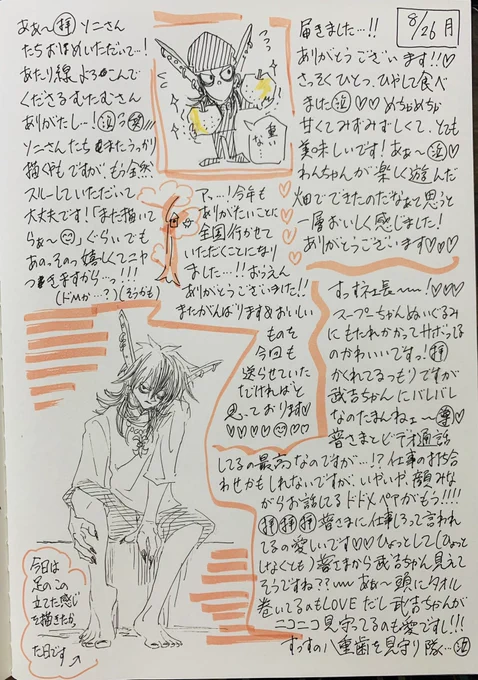 8/26 月
届きました…!!
ありがとうございます!!♡
さっそくひとつ、ひやして食べ
ました(泣)♡♡ めちゃめちゃ
甘くてみずみずしくて、とても
美味しいです! あぁ〜(泣)♡
わんちゃんが楽しく遊んだ
畑でできたのだなぁて思うと
一層おいしく感じました!
ありがとうございます♡♡♡
重い
な…
あぁ〜(拝)ソニさん
たちおほめいただいて…!
あたり線よろこんで
くださるむたむさん
ありがたし…!(泣)
ソニさんたちまたうっかり
描くやもですが、もう全然
スルーしていただいて
大丈夫です!「また描いて
らぁ〜」ぐらいでも
あの、その、嬉しくてニヤ
つきますから…っ!!!
(ドMか…?)(そうかも)
アッ…!今年も
ありがたいことに
全国行かせて
いただくことになり
ました…!!おうえん
ありがとうございました!!
またがんばります&おいしい
ものを
今回も
送らせていた
だければと
思っております♡
すっすネ社長〜ー!♡♡♡
スープーちゃんぬいぐるみ
にもたれかかってサボってる
のかわいいですっ!(拝)
かくれてるつもりですが
武吉ちゃんにバレバレ
なのたまんねェ〜(尊)
普さまとビデオ通話
してるの最高なのですが…!?仕事の打ち合
わせかもしれないですが、いやいや、顔みな
がらお話してるドドメペアがもう!!!!
(拝)(拝)(拝)普さまに仕事しろって言われ
てるの愛しいです♡♡ひょっとして(ひょっと
しなくとも)普さまから武吉ちゃん見えて
そうですね??〜あぁ〜頭にタオル
巻いてるのもLOVEだし武吉ちゃんが
ニコニコ見守ってるのも愛ですし!!!
すっすの八重歯を見守り隊…(泣)
今日は
足のこの
立てた感じ
を描きたかっ
た日です